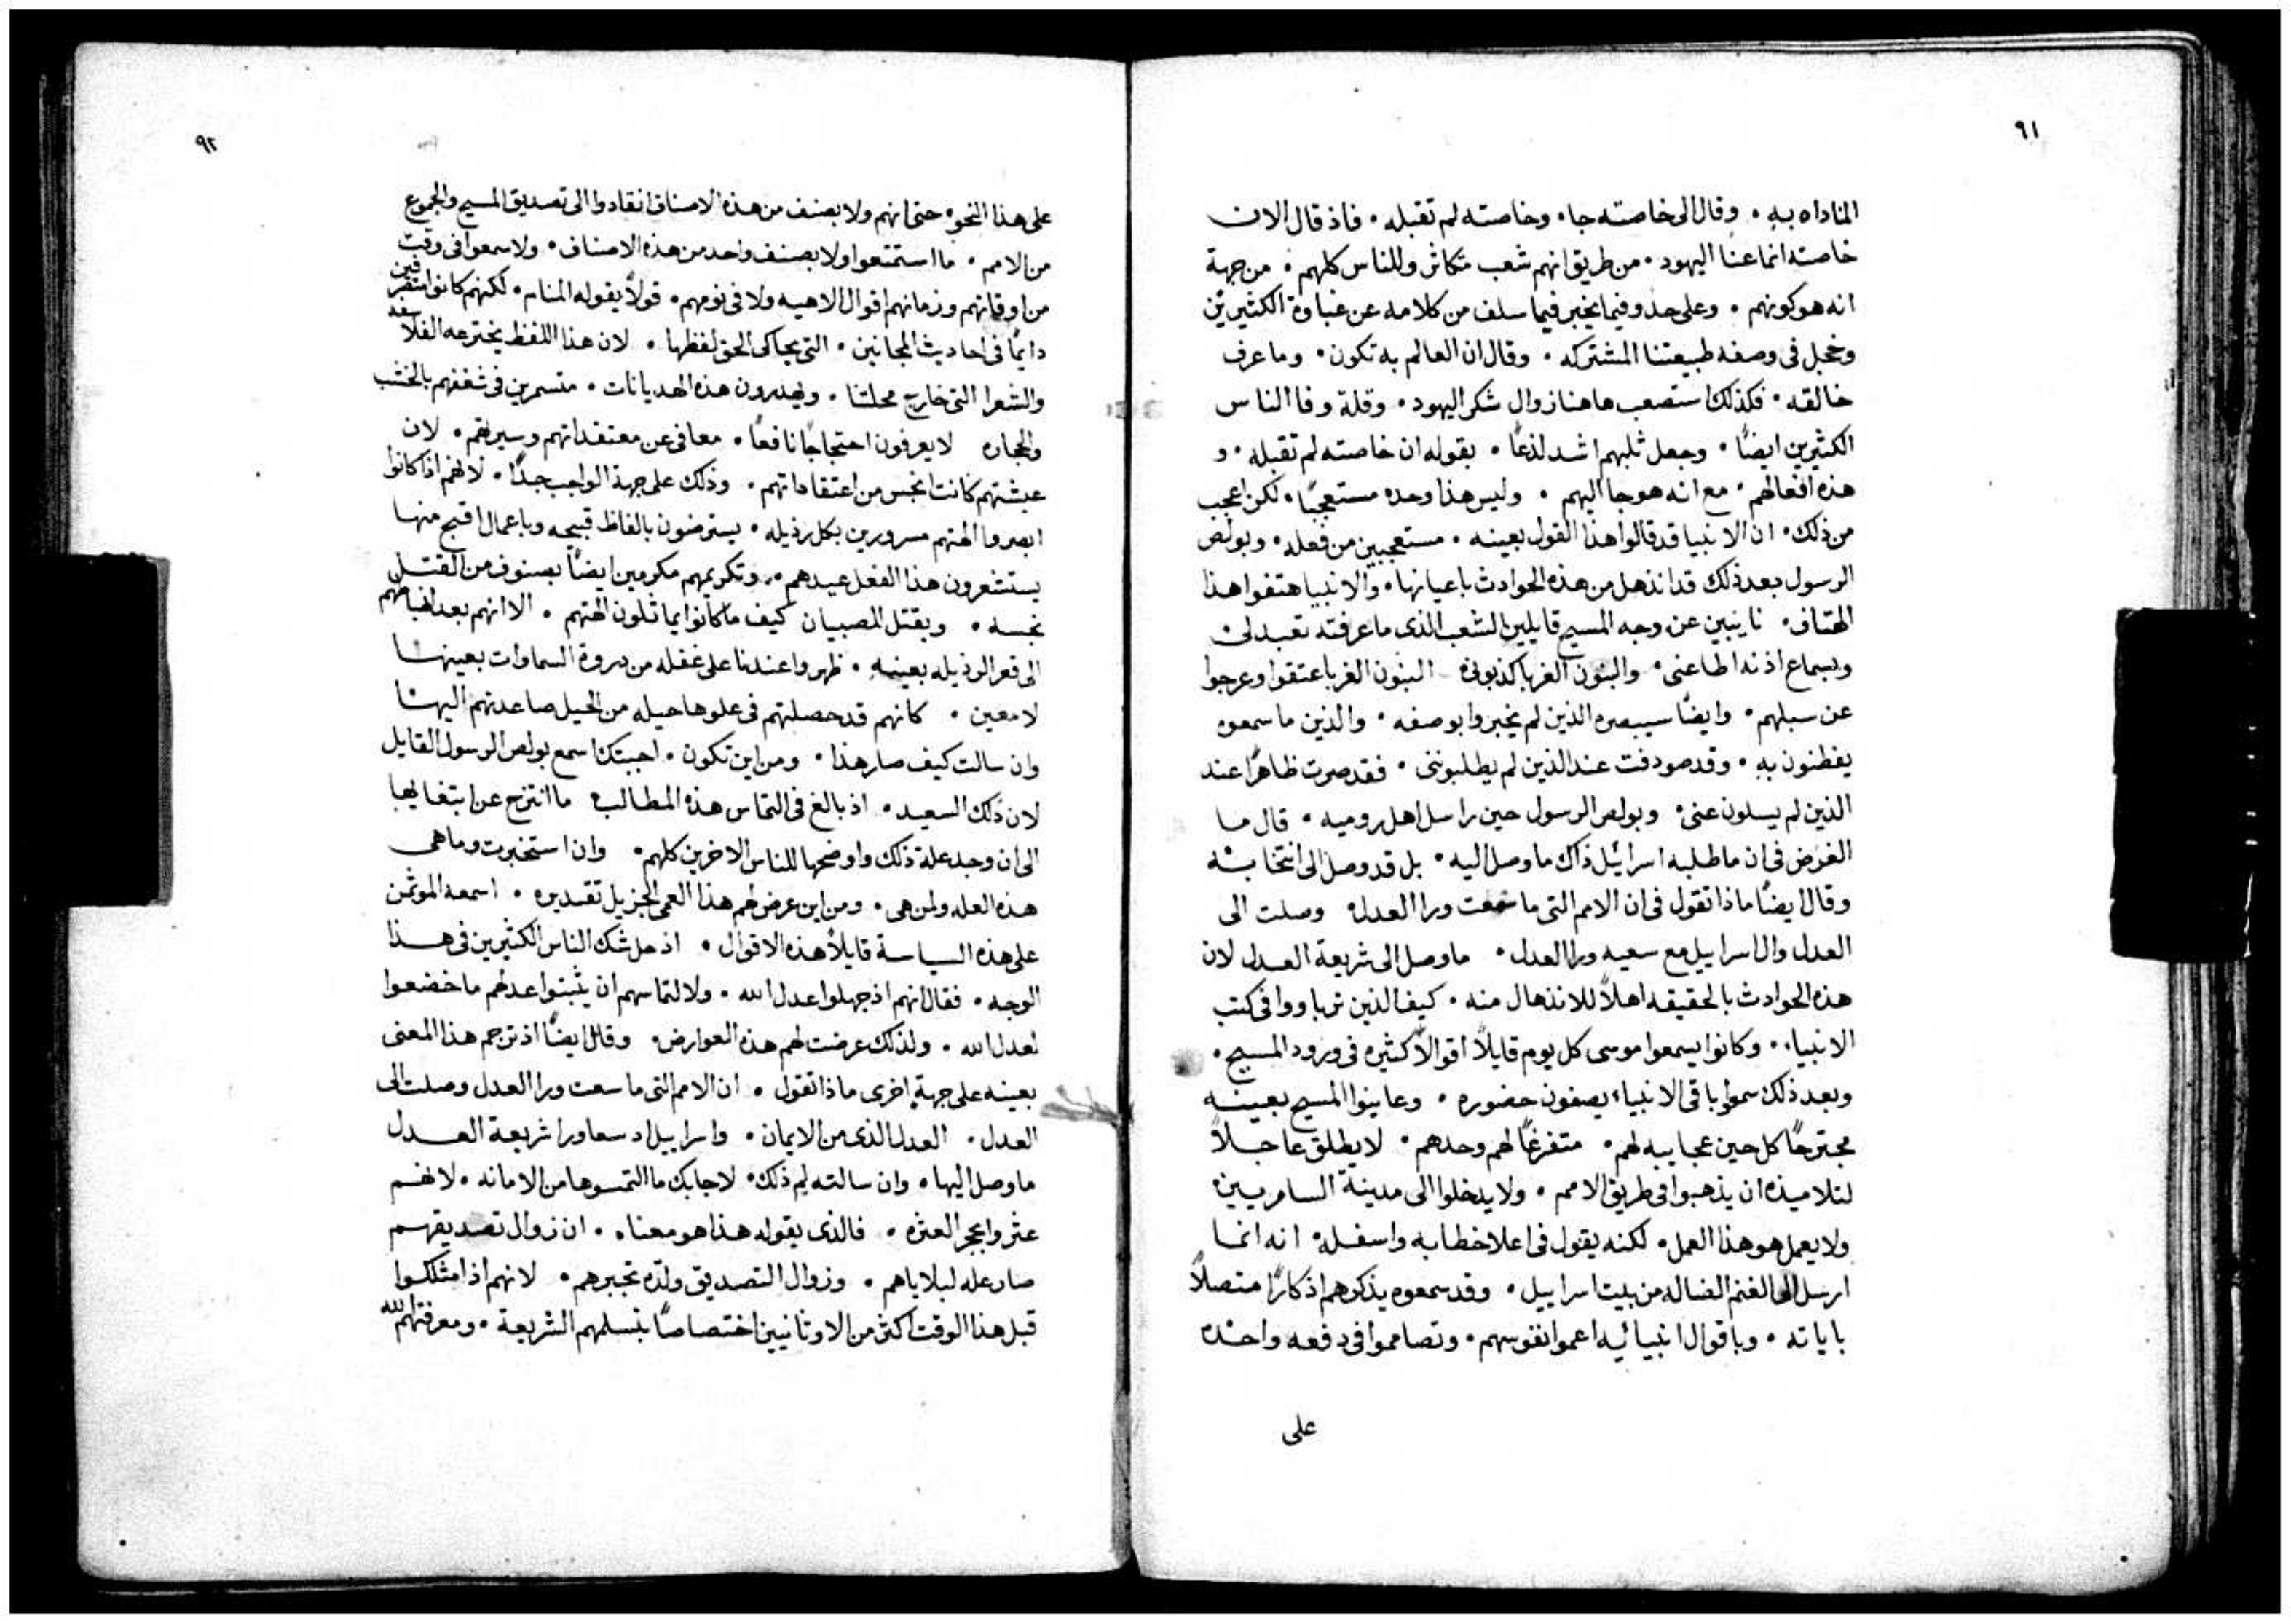 ٩١
المناداه به. وقال الى خاصته جا. وخاصته لم تقبله. فاذ قال الان
خاصته انما عنا اليهود. من طريق انهم شعب متكاثر وللناس كلهم. من جهة
انه هو كونهم. وعلى حذو فيما يخبر فيما سلف من كلامه عن غباوة الكثيرين
وخجل فى وصفه طبيعتنا المشتركه. وقال ان العالم به تكون. وما عرف
خالقه. فكذلك استصعب هاهنا زوال شكر اليهود. وقلة وفا الناس
الكثيرين ايضًا. وجعل ثلبهم اشد لذعًا. بقوله ان خاصته لم تقبله. و
هذه افعالهم. مع انه هو جا اليهم. وليس هذا وحده مستعجبًا. لكن اعجب
من ذلك. ان الانبيا قد قالوا هذا القول بعينه. مستعجبين من فعله. وبولص
الرسول بعد ذلك قد انذهل من هذه الحوادث باعيانها. والانبيا هتفوا هذا
الهتاف. نايبين عن وجه المسيح قايلين الشعب الذى ما عرفته تعبد لى
وبسماع اذنه اطاعنى. والبنون الغربا كذبونى البنون الغربا عتقوا وعرجوا
عن سبلهم. وايضًا سيبصره الذين لم يخبروا بوصفه. والذين ما سمعوه
يفطنون به. وقد صودفت عند الذين لم يطلبوننى. فقد صرت ظاهرًا عند
الذين لم يسلون عنى. وبولص الرسول حين راسل اهل روميه. قال ما
الغرض فى ان ما طلبه اسرائيل ذاك ما وصل اليه. بل قد وصل الى انتخابه
وقال ايضًا ماذا نقول فى ان الامم التى ما سعت ورا العدل. وصلت الى
العدل وال اسراييل مع سعيه ورا العدل. ما وصل الى شريعة العدل لان
هذه الحوادث بالحقيقه اهلاً للانذهال منه. كيف الذين تربا ووا فى كتب
الانبياء. وكانوا يسمعوا موسى كل يوم قايلاً اقوالاً كثيره فى ورود المسيح.
وبعد ذلك سمعوا باقى الانبياء يصفون حضوره. وعاينوا المسيح بعينه
مجترحًا كل حين عجايبه لهم. متفرغًا لهم وحدهم. لا يطلق عاجلاً
لتلاميذه ان يذهبوا فى طريق الامم. ولا يدخلوا الى مدينة السامريين
ولا يعمل هو هذا العمل. لكنه يقول فى اعلا خطابه واسفله. انه انما
ارسل الى الغنم الضاله من بيت اسراييل. وقد سمعوه يذكرهم اذكارًا متصلاً
باياته. وباقوال انبيائيه اعموا نفوسهم. وتصامموا فى دفعه واحده
على
٩٢
على هذا النحو. حتى انهم ولا بصنف من هذه الاصناف انقادوا الى تصديق المسيح والجموع
من الامم. ما استمتعوا ولا بصنف واحد من هذه الاصناف. ولا سمعوا فى وقت
من اوقاتهم وزمانهم اقوال الاهيه ولا فى نومهم. قولاً يقوله المنام. لكنهم كانوا متفرقين
دايمًا فى احاديث المجانين. التى يحاكى الحق لفظها. لان هذا اللفظ يخترعه الفلاسفه
والشعرا التى خارج محلتنا. ويهدرون هذه الهديانات. متسمرين فى شغفهم بالخشب
والحجاره لا يعرفون احتجاجًا نافعًا. معافى عن معتقداتهم وسيرتهم. لان
عيشتهم كانت انجس من اعتقاداتهم. وذلك على جهة الواجب جدًا. لانهم اذا كانوا
ابصروا الهتهم مسرورين بكل رذيله. يسترضون بالفاظ قبيحه وباعمال اقبح منها
يستشعرون هذا الفعل عيدهم. وتكريمهم مكرمين ايضًا بصنوف من القتل
نجسه. وبقتل الصبيان كيف ما كانوا يماثلون الهتهم. الا انهم بعد انهباطهم
الى قعر الرذيله بعينه. ظهروا عندنا على غفله من دروة السماوات بعينها
لامعين. كانهم قد حصلتهم فى علوها حيله من الحيل صاعدتهم اليها
وان سالت كيف صار هذا. ومن اين تكون. اجبتك اسمع بولص الرسول القايل
لان ذلك السعيد. اذ بالغ فى التماس هذه المطالب ما انتزح عن ابتغايها
الى ان وجد علة ذلك واوضحها للناس الاخرين كلهم. وان استخبرت وما هى
هذه العله ولمن هى. ومن اين عرض لهم هذا العمى الجزيل تقديره. اسمعه الموتمن
على هذه السياسة قايلاً هذه الاقوال. اذ حل شك الناس الكثيرين فى هذا
الوجه. فقال انهم اذ جهلوا عدل الله. ولالتماسهم ان يثبتوا عدلهم ما خضعوا
لعدل الله. ولذلك عرضت لهم هذه العوارض. وقال ايضًا اذ ترجم هذا المعنى
بعينه على جهةٍ اخرى ماذا نقول. ان الامم التى ما سعت ورا العدل وصلت الى
العدل. العدل الذى من الايمان. واسراييل اد سعا ورا شريعة العدل
ما وصل اليها. وان سالته لم ذلك. لاجابك ما التمسوها من الامانه. لانهم
عثروا بحجر العثره. فالذى يقوله هذا هو معناه. ان زوال تصديقهم
صار عله لبلاياهم. وزوال التصديق ولده تجبرهم. لانهم اذ امتلكوا
قبل هذا الوقت اكثر من الاوثانيين اختصاصًا بتسلمهم الشريعة. ومعرفتهم لله